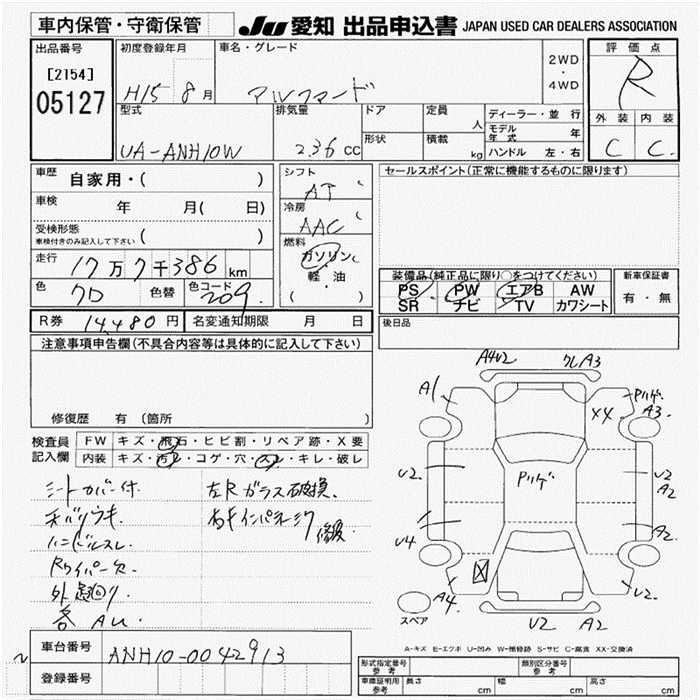 車内保管・守衛保管
JU 愛知 出品申込書 JAPAN USED CAR DEALERS ASSOCIATION
出品番号
[2154]
05127
初度登録年月
H15 8月
車名・グレード
アルファード
2WD
・
4WD
評価点
R
外装 内装
C C
型式
UA-ANH10W
排気量
2.36 CC
ドア
形状
定員 人
積載 kg
ディーラー・並行
モデル年式 年
ハンドル 左・右
車歴 自家用・( )
車検 年 月( 日)
受検形態
車検付きのみ記入して下さい ( )
走行 17万7千386km
色 クロ 色替 色コード 209
R券 14,480円 名変通知期限 月 日
シフト
AT
冷房
AAC
燃料
ガソリン
軽・油
( )
セールスポイント(正常に機能するものに限ります)
装備品(純正品に限り○をつけてください)
PS PW エアB AW
SR ナビ TV カワシート
新車保証書
有・無
後日品
注意事項申告欄(不具合内容等は具体的に記入して下さい)
修復歴 有 (箇所
検査員記入欄
FW キズ・飛石・ヒビ割・リペア跡・X要
内装 キズ・汚レ・コゲ・穴・スレ・キレ・破レ
シートカバー付.
左Rガラス破損.
ハンドルスレ.
Rワイパー欠.
外廻り.
各AU.
A4U2
A3
A1
Pハゲ
A3.
X4
U2.
Pハゲ
U2
A2
U4
A2
A4
U2.
U2
A2
スペア
A-キズ E-エクボ U-凹み W-補修跡 S-サビ C-腐食 XX-交換済
車台番号 ANH10-0042913
登録番号
形式指定番号 参考
類別区分番号 参考
車庫証明用 参考 長さ cm 幅 cm 高さ cm